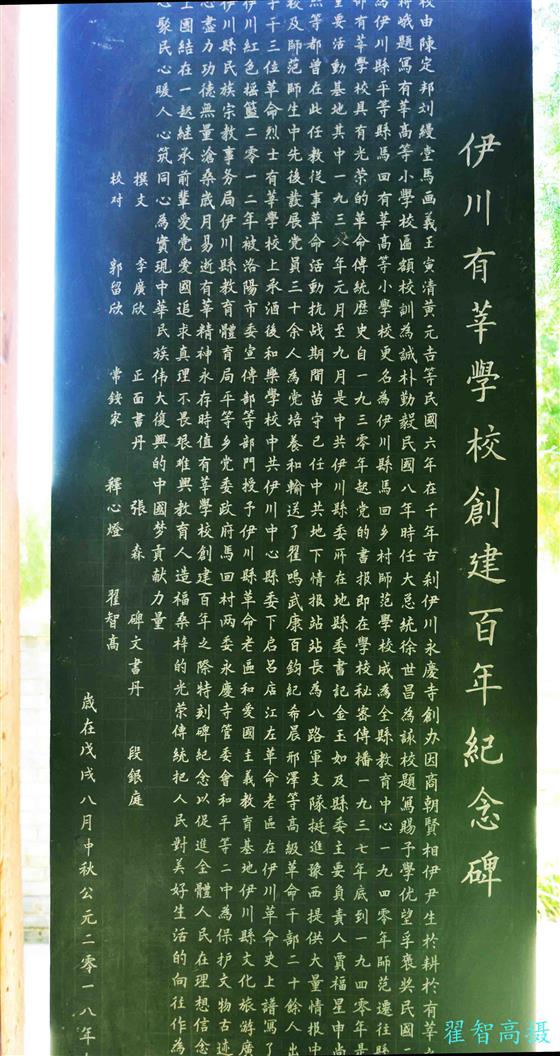 伊川有莘學校創建百年紀念碑
校由陳定邦刘縵堂馬画義王寅清黄元吉等民國六年在千年古刹伊川永慶寺創办因商朝賢相伊尹生於耕於有莘
将娥題寫有莘高等小學校匾額校訓為誠朴勤毅民國八年時任大总統徐世昌為該校題寫賜予學优望孚褒奖民國一
為伊川縣平等縣馬回有莘高等小學校更名為伊川縣馬回乡村師范學校成為全縣教育中心一九四零年師范遷往縣
部有莘學校具有光荣的革命傳統歷史自一九三零年起党的書报即在學校秘密傳播一九三七年底到一九四零年是
主要活動基地其中一九三八年元月至九月是中共伊川縣委所在地縣委書記金玉如及縣委主要負責人賈福星申尚
然等都曾在此任教從事革命活動抗战期間苗守己任中共地下情报站站長為八路軍支隊挺進豫西提供大量情报中
校及師范師生中先後發展党員三十余人為党培養和輸送了翟鳴武康百鈞紀希晨邢澤等高級革命干部二十餘人出
子干三位革命烈士有莘學校上承酒後和樂學校中共伊川中心縣委下启吕店江左革命老區在伊川革命史上譜寫了
伊川紅色摇籃二零一二年被洛陽市委宣傳部等部門授予伊川縣革命老區和爱國主義教育基地伊川縣文化旅游廣
伊川縣民族宗教事务局伊川縣教育體育局平等乡党委政府馬回村两委永慶寺管委會和平等二中為保护文物古迹
心盡力功德無量滄桑歲月易逝有莘精神永存時值有莘學校創建百年之際特刻碑紀念以促進全體人民在理想信念
上團结在一起継承前輩爱党愛國追求真理不畏艰难興教育人造福桑梓的光荣傳統把人民對美好生活的向往作為
心聚民心暖人心筑同心為實現中華民族伟大復興的中國梦贡献力量
撰文 李廣欣 正面書丹 張森 碑文書丹 段銀庭
校对 郭留欣 常錢家 釋心燈 翟智高
歳在戊戌八月中秋公元二零一八年
翟智高摄